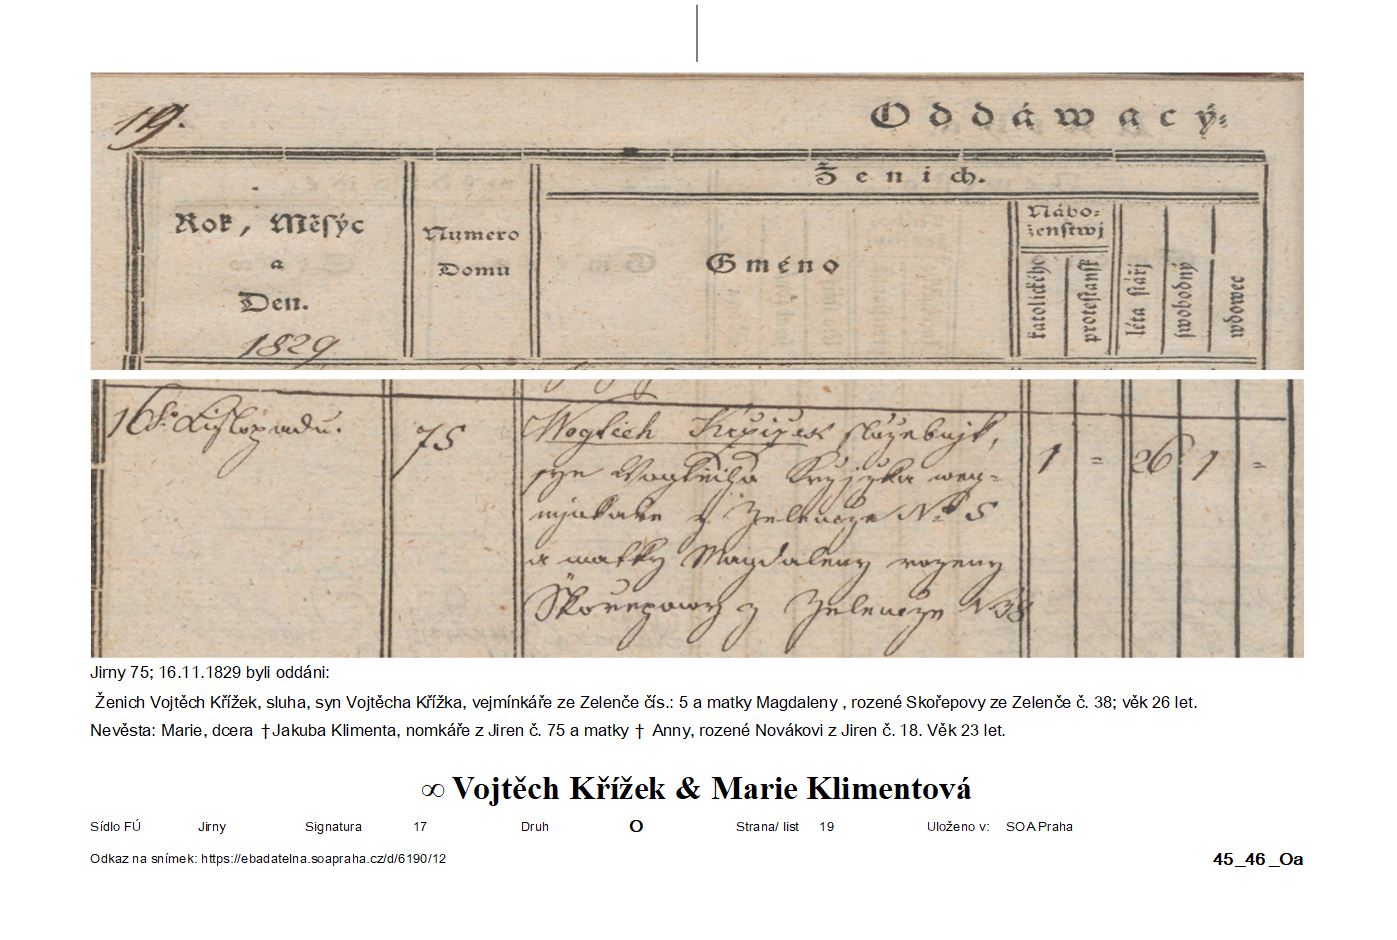 19.
Oddáwacý:
Ženich.
Rok, Měsýc
a
Den.
1829
Numero
Domu
Gméno
Nábo=
ženstwj
katolického
protestansk
léta stářj
swobodný
wdowec
16ho Listopadu.
75
Wogtěch Krzizek služebnjk,
syn Wogtěcha Krzizka wey=
mjnkáře z Zelencze No 5
a matky Magdaleny rozeny
Skořepowy z Zelencze N 38
1 = 26 1 =
Jirny 75; 16.11.1829 byli oddáni:
Ženich Vojtěch Křížek, sluha, syn Vojtěcha Křížka, vejmínkáře ze Zelenče čís.: 5 a matky Magdaleny , rozené Skořepovy ze Zelenče č. 38; věk 26 let.
Nevěsta: Marie, dcera †Jakuba Klimenta, nomkáře z Jiren č. 75 a matky † Anny, rozené Novákovi z Jiren č. 18. Věk 23 let.
∞ Vojtěch Křížek & Marie Klimentová
Sídlo FÚ Jirny Signatura 17 Druh O Strana/ list 19 Uloženo v: SOA Praha
Odkaz na snímek: https://ebadatelna.soapraha.cz/d/6190/12
45_46_Oa